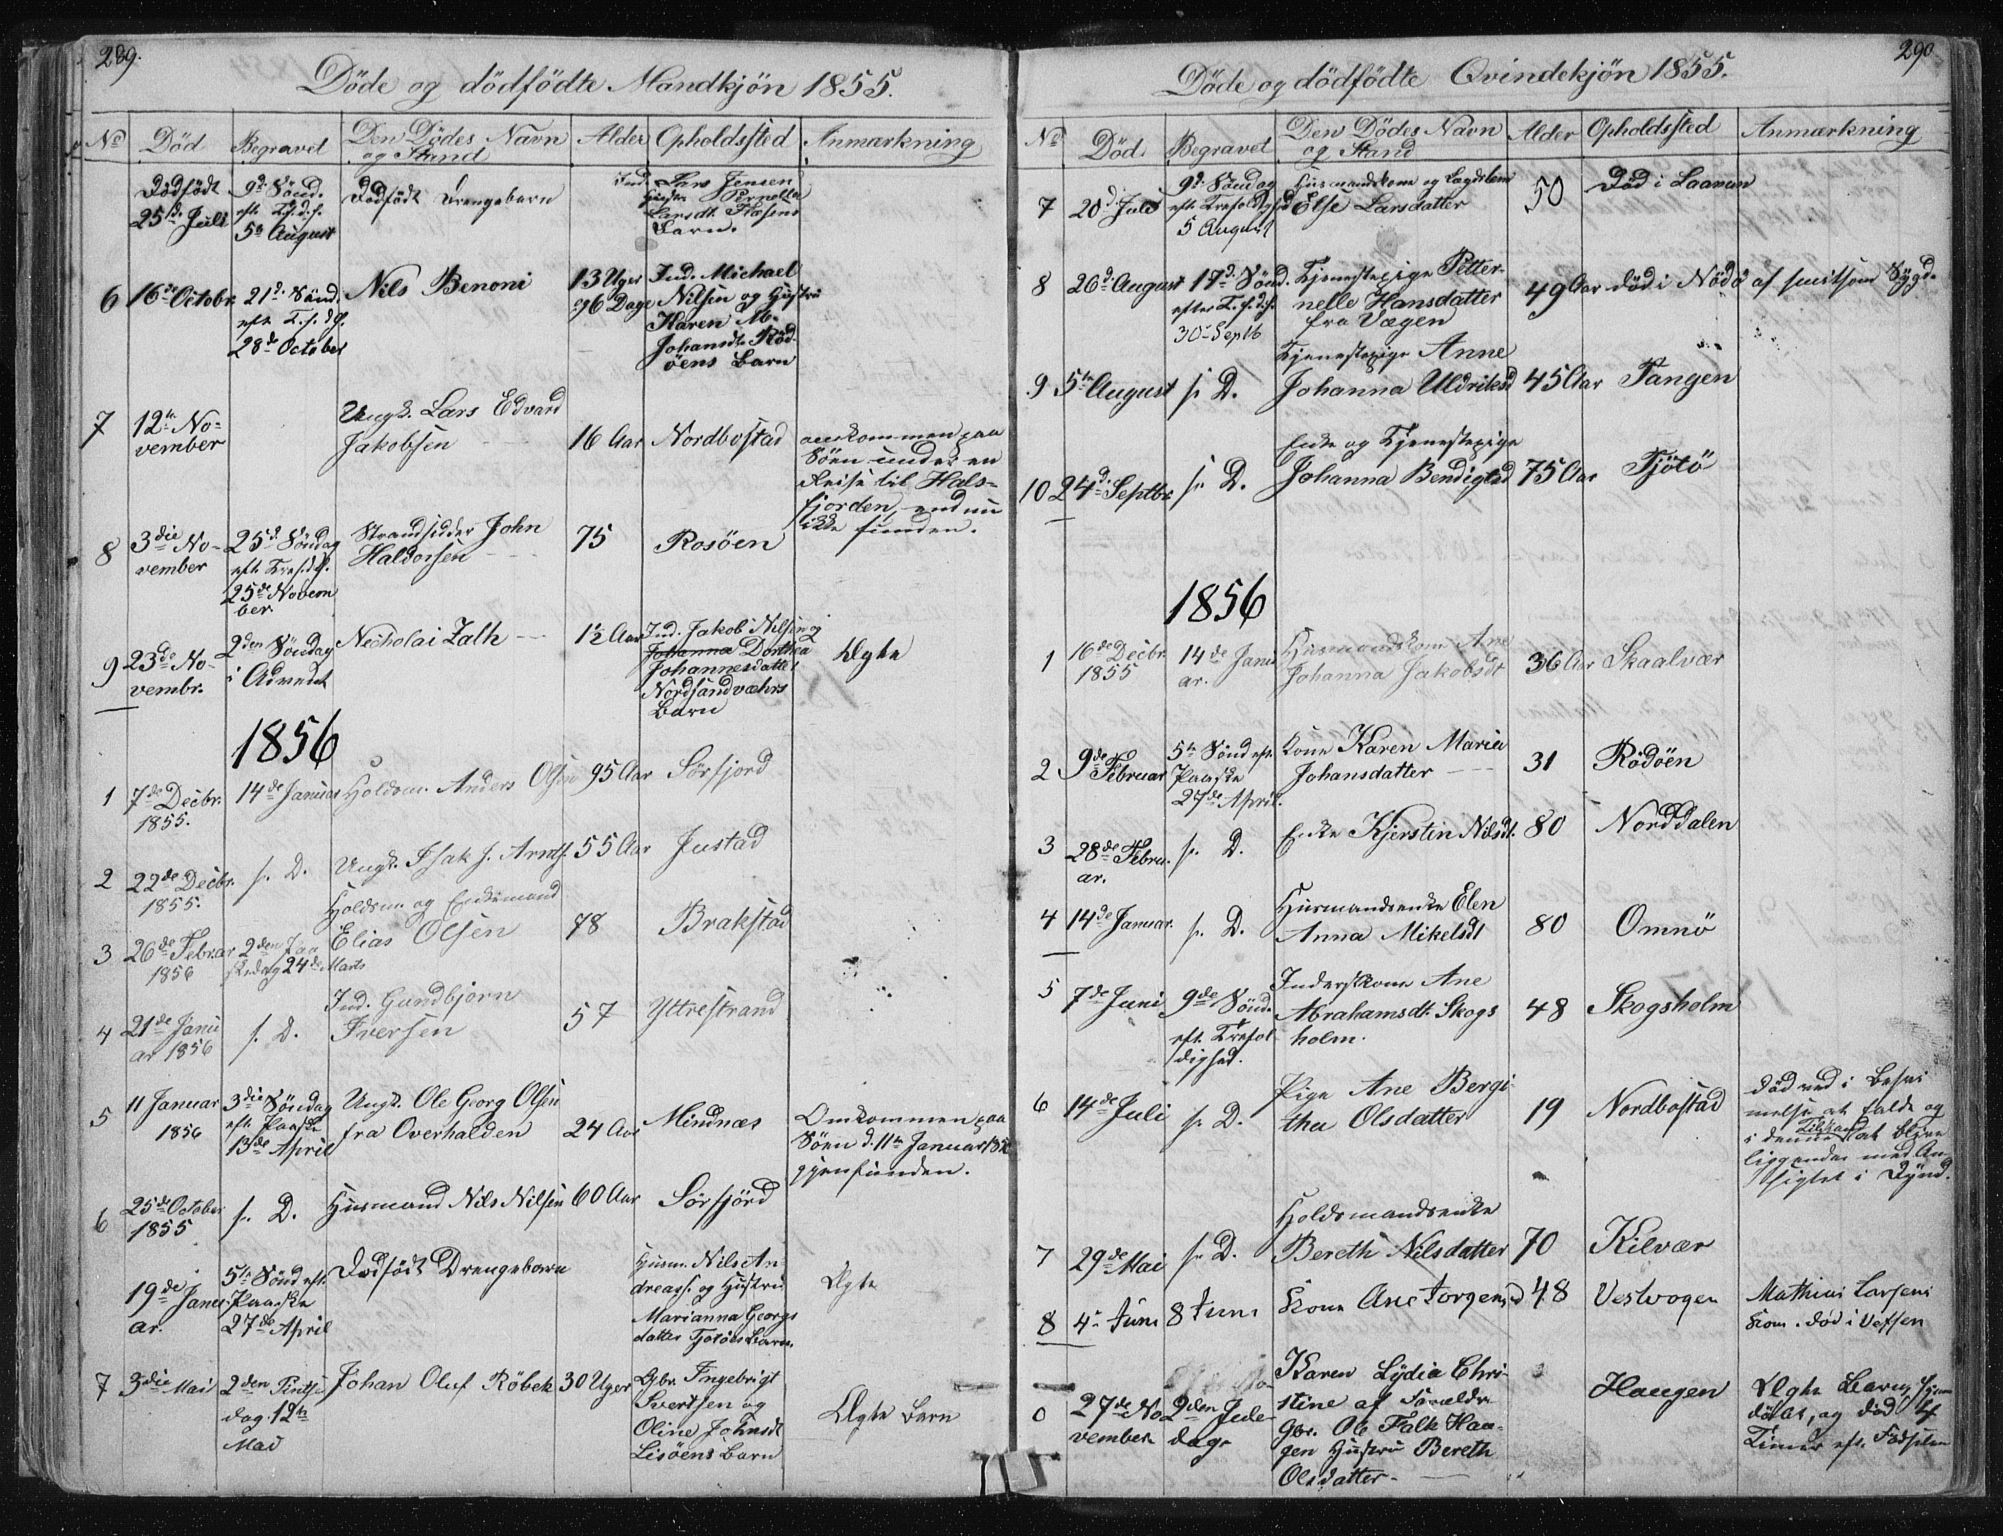 289.
Döde og dödfödte Mandkjön 1855.
No Död Begravet Den Dödes Navn og Stand Alder Opholdssted Anmærkning
Dödfödt 25de Juli
9de Sönd. eft. T.f.d.f. 5te August
Dödfödt Drengebarn
Ind. Lars Jensen
Pernella
Larsdt.
Barn.
6 16de Octobr.
21de Sönd. eft. T.f.df. 28de October
Nils Benoni
13 Uger og 6 Dage
Ind. Michael
Nilsen og Hustru
Karen M.
Johansdt. Röd-
öens Barn
7 12te No-
vember
Ungk. Lars Edvard
Jakobsen
16 Aar
Nordbostad
omkommen paa
Söen under en
Reise til Hals-
fjorden, endnu
ikke funden.
8 3die No-
vember
25de Söndag
eft. Tref.df.
25de Novem
ber
Strandsidder John
Haldorsen
75
Rosöen
9 23de No-
vembr.
2den Söndag
i Advent
Necholai Zalh
1½ Aar
Ind. Jakob Nilsen og
Johanna Dorthea
Johannesdatter
Nordsandværs
Barn
Ægte
1856
1 7de Decbr.
1855.
14de Januar
Holdsm. Anders Olsen
95 Aar
Sörfjord
2 22de Decbr.
1855.
s. D.
Ungk. Isak J. Arnts.
55 Aar
Justad
3 26de Februar
1856
2den Paa
skedag 24de Marts
Holdsm. og Enkemand
Elias Olsen
78
Brakstad
4 21de Janu
ar 1856
s. D.
Ind. Gundbjorn
Iversen
57
Yttrestrand
5 11 Januar
1856
3die Söndag
eft. Paaske
13de April
Ungk. Ole Georg Olsen
fra Overhalden
24 Aar
Mindnæs
Omkommen paa
Söen d. 11te Januar
gjenfunden.
6 25de October
1855
s. D.
Husmand Nils Nilsen
60 Aar
Sörfjörd
19de Janu-
ar.
5te Sönd eft.
Paaske
27de April
Dödfödt Drengebarn
Husm. Nils An-
dreass. og Hustru
Marianna Georgs
datter Tjötöes Barn.
Ægte
7 3die Mai
2den Pintse
dag. 12te
Mai
Johan Oluf Röbek
30 Uger
Gbr. Ingebrigt
Sivertsen og
Oline Johnsdt
Lisöens Barn
Ægte Barn
290
Döde og dödfödte Qvindekjön 1855.
No Död. Begravet Den Dödes Navn og Stand Alder Opholdssted Anmærkning
7 20de Juli
9de Söndag
eft. Trefoldighed
5 August
Husmandskone og Lægdslem
Else Larsdatter
50
Död i Laanan
8 26de August
17de Sönd.
efter T.f.d.f.
30te Septb
Tjenestepige Petter-
nelle Hansdatter
fra Vægen
49 Aar
död i Nödö af smitsom Sygd.
9 5te August
s. D.
Tjenestepige Anne
Johanna Uldriksd
45 Aar
Tangen
10 24de Septbr.
s. D.
Enke og Tjenestepige
Johanna Bendigtsd
75 Aar
Tjötö
1856
1 16de Decbr.
1855
14de Janu
ar.
Husmandskone Ane
Johanna Jakobsdt
36 Aar
Skaalvær
2 9de Februar
5te Sönd eft.
Paaske
27de April.
Kone Karen Maria
Johansdatter
31
Rödöen
3 28de Febru-
ar.
s. D.
Enke Kjerstin Nilsdt.
80
Norddalen
4 14de Januar.
s. D.
Husmandsenke Elen
Anna Mikelsdt
80
Omnö
5 7de Juni
9de Sönd.
eft. Trefol-
dighed.
Inderstkone Ane
Abrahamsdt. Skogs
holm.
48
Skogsholm
6 14de Juli
s. D.
Pige Ane Bergi-
tha Olsdatter
19
Nordbostad
död ved i Besvi
melse at falde og
i denne Tilstand at blive
liggende med An-
sigtet i Dynd.
7 29de Mai
s. D.
Holdsmandsenke
Bereth Nilsdatter
70
Kilvær
8 4de Juni
8 Juni
Kone Ane Jorgensd
48
Vestvogen
Mathias Larsens
Kone. död i Vefsen
27de No
vember
2den Jule-
dag
Karen Lydia Chri-
stine af Forældr.
Gbr. Ole Falk Hau-
gen Hustru Bereth
Olsdatter
Haugen
Ægte Barn, hjem
döbt, og död 4
Timer eft. Födselen